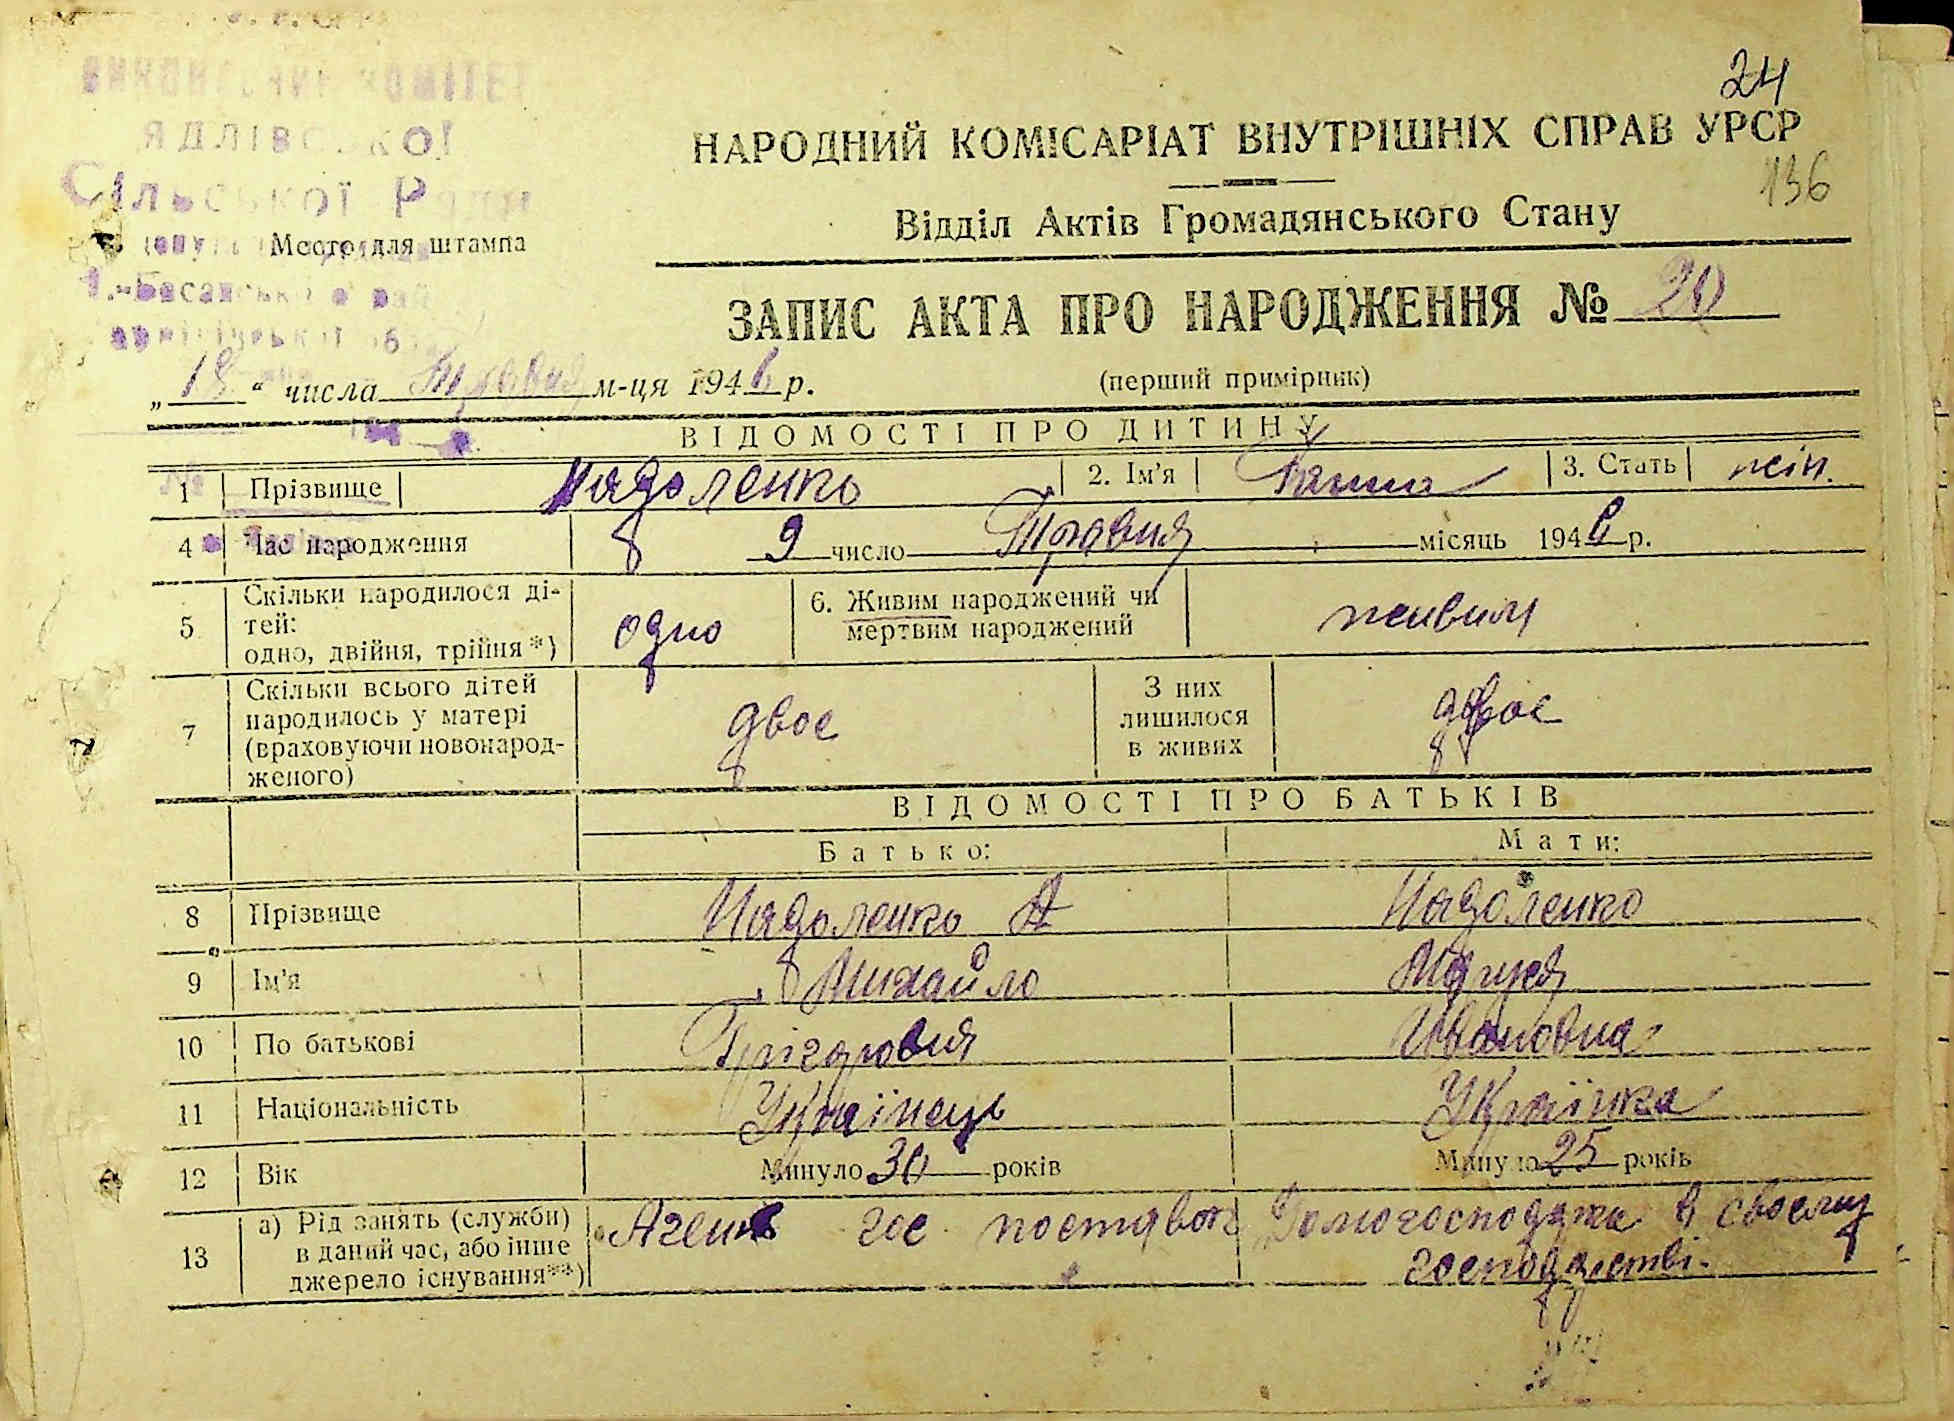 24
ВИКОНАВЧИЙ КОМІТЕТ
ЯДЛІВСЬКОЇ
Сільської Ради
НАРОДНИЙ КОМІСАРІАТ ВНУТРІШНІХ СПРАВ УРСР
136
Відділ Актів Громадянського Стану
Место для штампа
ЗАПИС АКТА ПРО НАРОДЖЕННЯ № 20
(перший примірник)
„ “ числа Травня м-ця 1946 р.
ВІДОМОСТІ ПРО ДИТИНУ
1 Прізвище Надоленко 2. Ім'я Ганна 3. Стать жін.
4 Час народження 9 число Травня місяць 1946 р.
5 Скільки народилося ді-
тей:
одно, двійня, трійня *) одно 6. Живим народжений чи
мертвим народжений живим
7 Скільки всього дітей
народилось у матері
(враховуючи новонарод-
женого) двоє З них
лишилося
в живих двоє
ВІДОМОСТІ ПРО БАТЬКІВ
Батько: Мати:
8 Прізвище Надоленко Надоленко
9 Ім'я Михайло Маруся
10 По батькові Ивановна
11 Національність Українець Українка
12 Вік Минуло 30 років Минуло 25 років
13 а) Рід занять (служби)
в даний час, або інше
джерело існування**) Агент гос поставок Домогосподжка в своєму
господарстві.